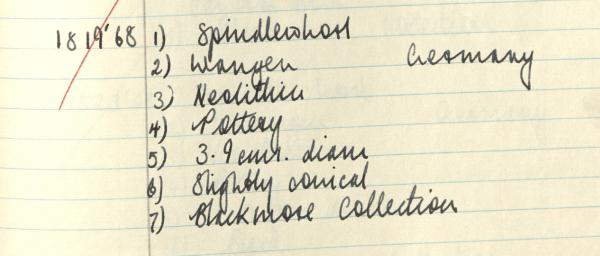 1819'68 1) Spindlewhorl
2) Wangen Germany
3) Neolithic
4) Pottery
5) 3.9 cms. diam
6) Slightly conical
7) Blackmore Collection